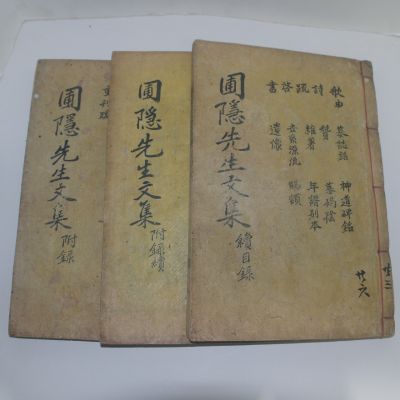 圃隱先生文集 續目錄
歌曲 詩 䟽 啓 書
墓誌銘 贊 雜著 遺像
神道碑銘 墓碣陰 年譜別本
圃隱先生文集 附錄續
圃隱先生文集 附錄